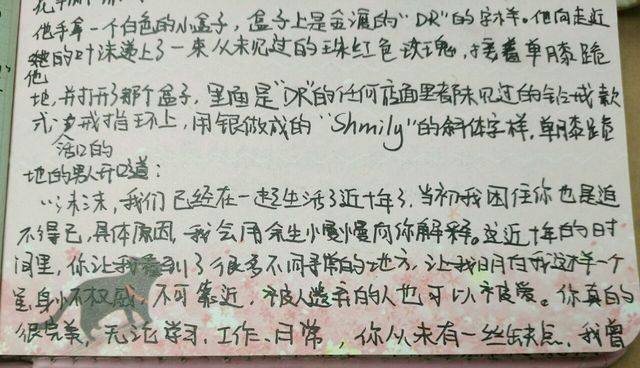 他手拿一个白色的小盒子，盒子上是金漆的“DR”的字样。他向走近
他的叶沫递上了一束从未见过的珠红色玫瑰，接着单膝跪
地，并打开了那个盒子，里面是“DR”的任何店面里都未见过的钻戒款
式，戒指环上，用银做成的“Shmily”的斜体字样，单膝跪
含泪的
地的男人开口道：
“沫沫，我们已经在一起生活了近十年了，当初我困住你也是迫
不得已，具体原因，我会用余生慢慢向你解释。这近十年的时
间里，你让我看到了很多不同寻常的地方，让我明白我这样一个
身 不 不可靠近，被人遗弃的人也可以被爱。你真的
很完美，无论学习、工作、日常，你从未有一丝缺点，我曾